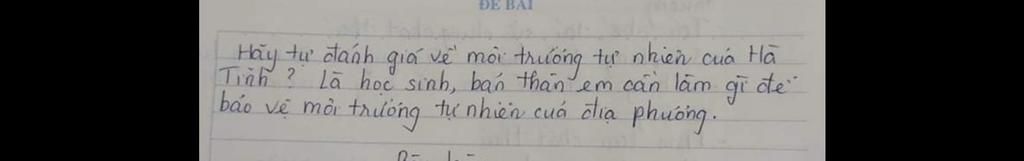 ĐỀ BÀI
Hãy tự đánh giá về môi trường tự nhiên của Hà
Tĩnh ? Là học sinh, bản thân em cần làm gì để
bảo vệ môi trường tự nhiên của địa phương.